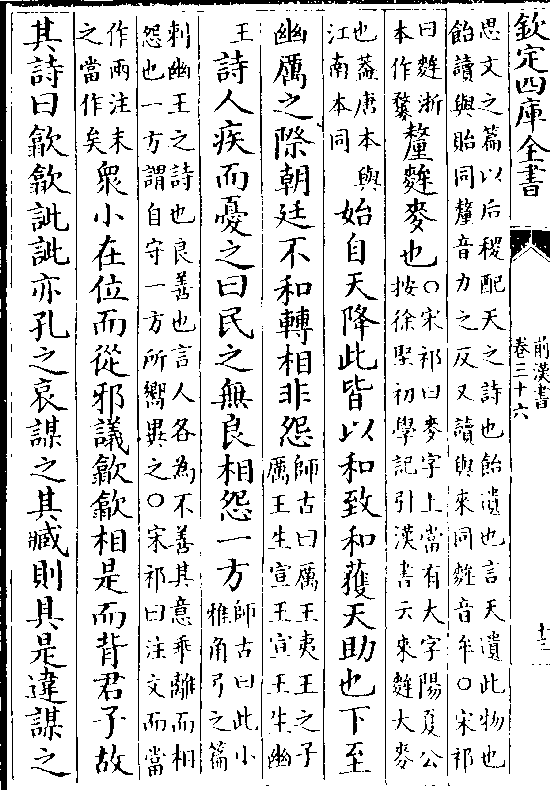 欽定四庫全書
前漢書
卷三十六
十二
思文之篇以后稷配天之詩也飴遺也言天遺此物也
飴讀與貽同釐音力之反又讀與來同麰音牟○宋祁
曰麰浙
本作䵺
釐麰麥也
○宋祁曰麥字上當有大字陽夏公
按徐堅初學記引漢書云來麰大麥
也葢唐本與
江南本同
始自天降此皆以和致和獲天助也下至
幽厲之際朝廷不和轉相非怨
師古曰厲王夷王之子
厲王生宣王宣王生幽
王
詩人疾而憂之曰民之無良相怨一方
師古曰此小
雅角弓之篇
刺幽王之詩也良善也言人各為不善其意乖離而相
怨也一方謂自守一方所嚮異之○宋祁曰注文而當
作兩注末
之當作矣
衆小在位而從邪議歙歙相是而背君子故
其詩曰歙歙訿訿亦孔之哀謀之其臧則具是違謀之